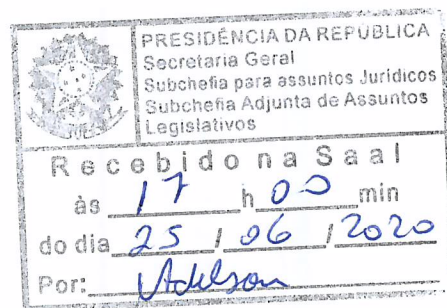 PRESIDÊNCIA DA REPÚBLICA
Secretaria Geral
Subchefia para assuntos Jurídicos
Subchefia Adjunta de Assuntos
Legislativos
Recebido na Saal
às 17 h 00 min
do dia 25 / 06 / 2020
Por: Adelson